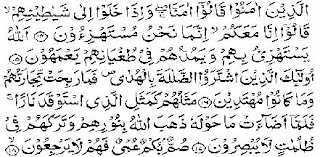 الَّذِينَ اٰمَنُوْا قَالُوْٓا اٰمَنَّا ۖ وَاِذَا خَلَوْا اِلٰى شَيٰطِيْنِهِمْ ۙ
قَالُوْٓا اِنَّا مَعَكُمْ ۙ اِنَّمَا نَحْنُ مُسْتَهْزِءُوْنَ ۝۱۴ اَللّٰهُ
يَسْتَهْزِئُ بِهِمْ وَيَمُدُّهُمْ فِيْ طُغْيَانِهِمْ يَعْمَهُوْنَ ۝۱۵
اُولٰٓئِكَ الَّذِيْنَ اشْتَرَوُا الضَّلٰلَةَ بِالْهُدٰى ۖ فَمَا رَبِحَتْ تِّجَارَتُهُمْ
وَمَا كَانُوْا مُهْتَدِيْنَ ۝۱۶ مَثَلُهُمْ كَمَثَلِ الَّذِى اسْتَوْقَدَ نَارًا ۚ
فَلَمَّآ اَضَآءَتْ مَا حَوْلَهٗ ذَهَبَ اللّٰهُ بِنُوْرِهِمْ وَتَرَكَهُمْ فِيْ
ظُلُمٰتٍ لَّا يُبْصِرُوْنَ ۝۱۷ صُمٌّۢ بُكْمٌ عُمْيٌ فَهُمْ لَا يَرْجِعُوْنَ ۝۱۸